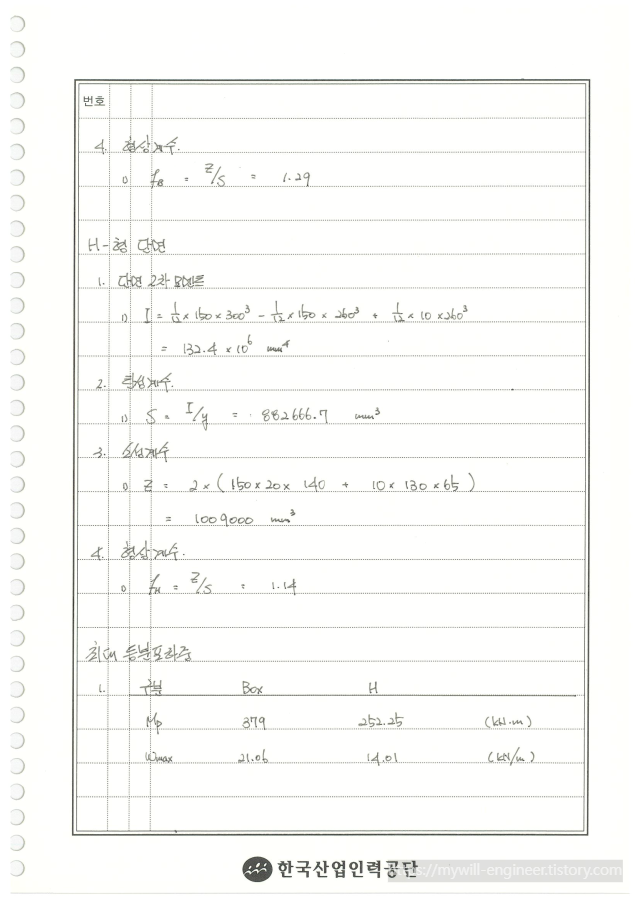 번호
4. 형상계수.
1) fB = Z/S = 1.29
H-형 단면
1. 단면 2차 모멘트
1) I = 1/12 × 150 × 300³ - 1/12 × 150 × 260³ + 1/12 × 10 × 260³
= 132.4 × 10⁶ mm⁴
2. 탄성계수.
1) S = I/y = 882666.7 mm³
3. 소성계수
1) Z = 2 × ( 150 × 20 × 140 + 10 × 130 × 65 )
= 1009000 mm³
4. 형상계수.
1) fH = Z/S = 1.14
최대 등분포하중
1. 구분 Box H
Mp 379 252.25 (kN·m)
Wmax 21.06 14.01 (kN/m)
한국산업인력공단
https://mywill-engineer.tistory.com